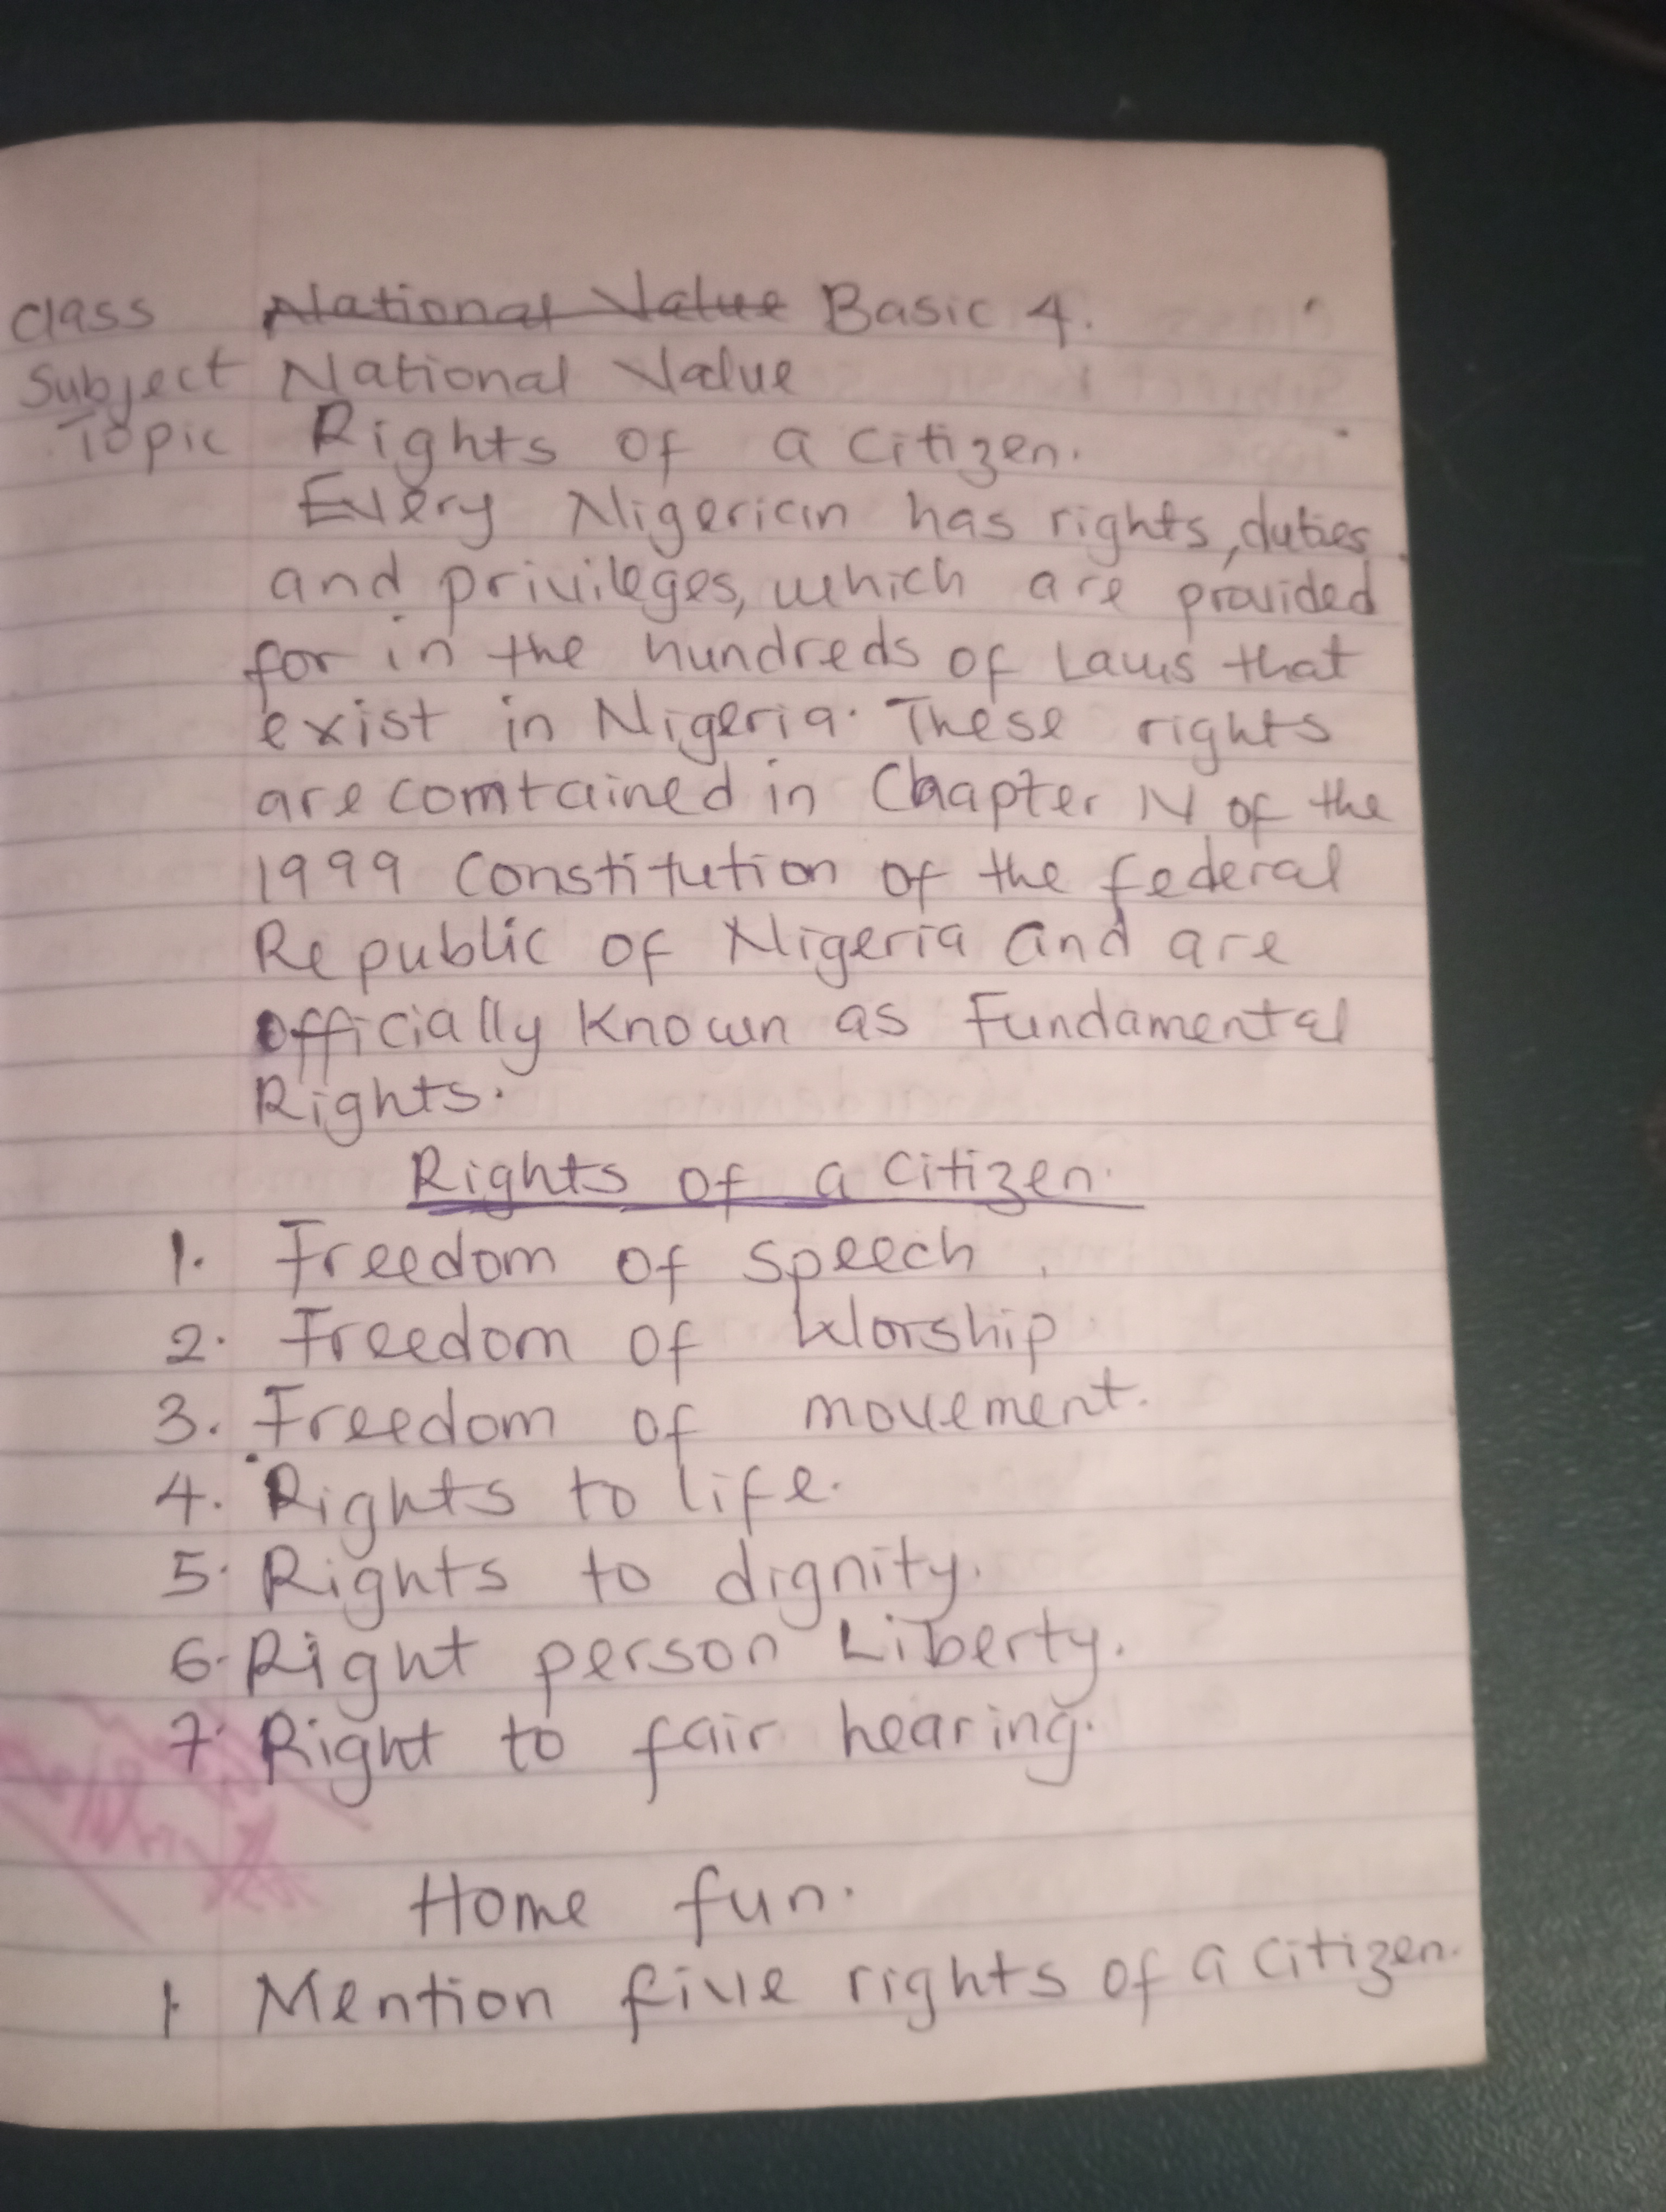 Class National Value Basic 4.
Subject National Value
Topic Rights of a citizen.
Every Nigerian has rights, duties
and privileges, which are provided
for in the hundreds of Laws that
exist in Nigeria. These rights
are comtained in Chapter IV of the
1999 Constitution of the federal
Republic of Nigeria and are
officially Known as Fundamental
Rights.
Rights of a citizen.
1. Freedom of speech
2. Freedom of Worship
3. Freedom of movement.
4. Rights to life.
5. Rights to dignity.
6. Right person Liberty.
7. Right to fair hearing.
Home fun.
1 Mention five rights of a citizen.